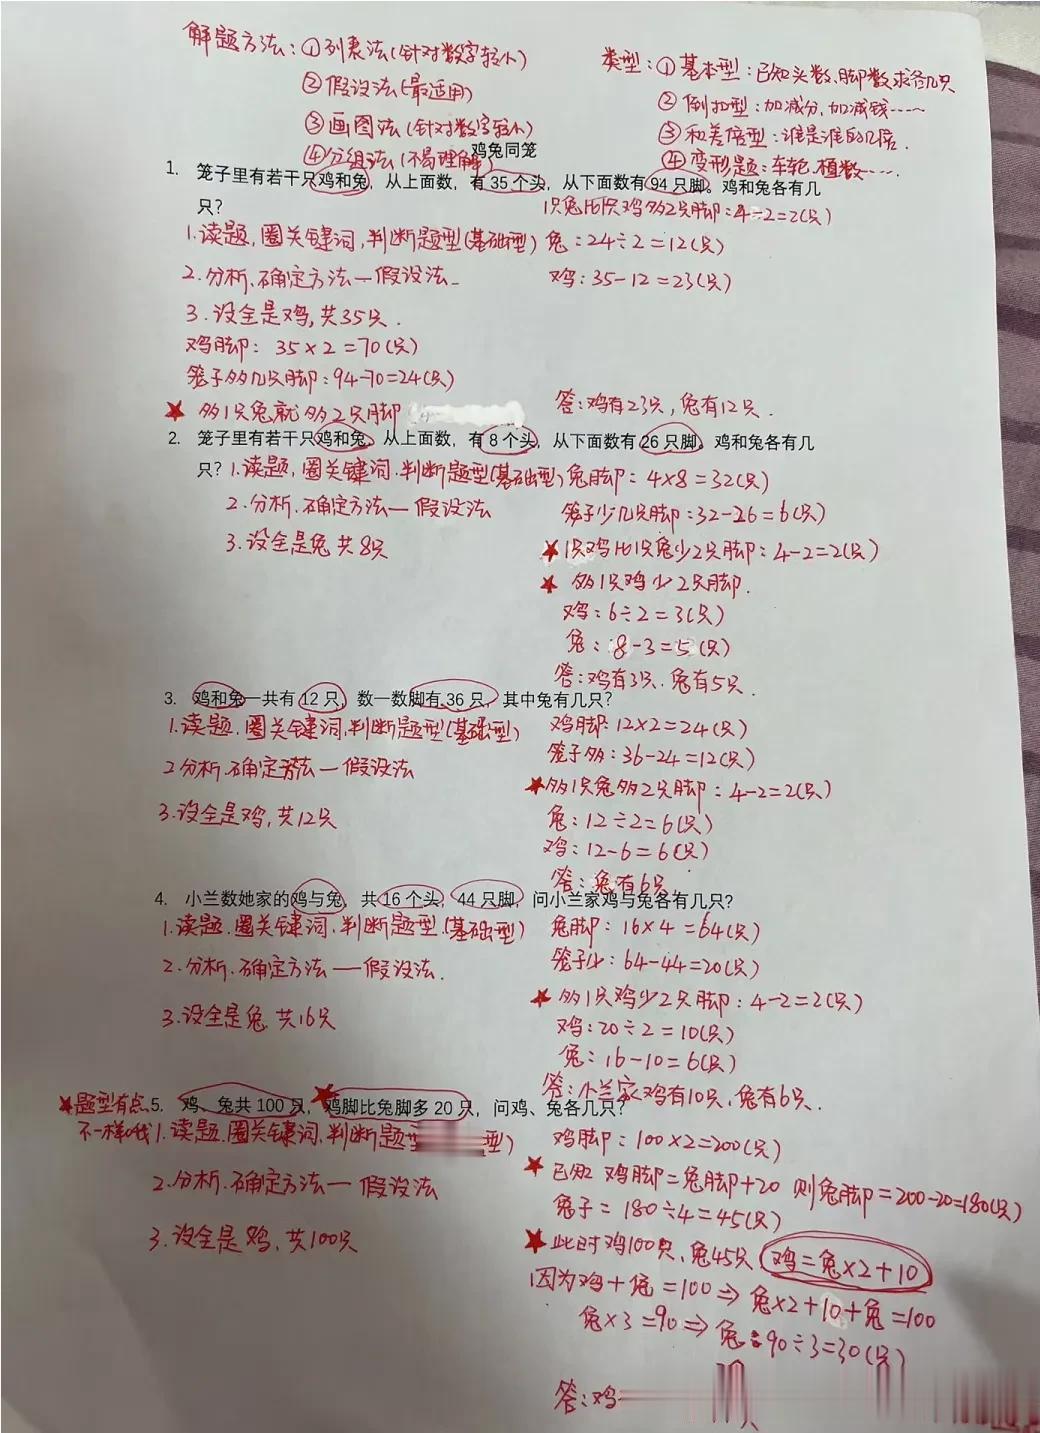 解题方法：①列表法(针对数字较小)
②假设法(最适用)
③画图法(针对数字较小)
④分组法(不易理解)
类型：①基本型：已知头数、脚数求各几只
②倒扣型：加减分,加减钱……
③和差倍型：谁是谁的几倍.
④变形题：车轮、植数….
鸡兔同笼
1. 笼子里有若干只鸡和兔，从上面数，有 35 个头，从下面数有 94 只脚。鸡和兔各有几
只？
1.读题,圈关键词,判断题型(基础型)
2.分析.确定方法—假设法.
3.设全是鸡,共35只.
鸡脚：35×2=70(只)
笼子多几只脚：94-70=24(只)
★ 多1只兔就多2只脚
1只兔比1只鸡多2只脚：4-2=2(只)
兔：24÷2=12(只)
鸡：35-12=23(只)
答：鸡有23只,兔有12只.
2. 笼子里有若干只鸡和兔，从上面数，有 8 个头，从下面数有 26 只脚。鸡和兔各有几
只？
1.读题,圈关键词.判断题型(基础型)
2.分析.确定方法—假设法
3.设全是兔 共8只
兔脚：4×8=32(只)
笼子少几只脚：32-26=6(只)
★ 1只鸡比1只兔少2只脚：4-2=2(只)
★ 多1只鸡少2只脚.
鸡：6÷2=3(只)
兔：8-3=5(只)
答：鸡有3只.兔有5只.
3. 鸡和兔一共有 12 只，数一数脚有 36 只，其中兔有几只？
1.读题.圈关键词.判断题型(基础型)
2分析.确定方法—假设法
3.设全是鸡,共12只
鸡脚：12×2=24(只)
笼子多：36-24=12(只)
★多1只兔多2只脚：4-2=2(只)
兔：12÷2=6(只)
鸡：12-6=6(只)
答：兔有6只
4. 小兰数她家的鸡与兔，共 16 个头，44 只脚，问小兰家鸡与兔各有几只？
1.读题.圈关键词.判断题型.(基础型)
2.分析.确定方法—假设法.
3.设全是兔 共16只
兔脚：16×4=64(只)
笼子少：64-44=20(只)
★ 多1只鸡少2只脚：4-2=2(只)
鸡：20÷2=10(只)
兔：16-10=6(只)
答：小兰家鸡有10只.兔有6只.
★题型有点
不一样哦
5. 鸡、兔共 100 只，鸡脚比兔脚多 20 只，问鸡、兔各几只？
1.读题.圈关键词.判断题 型)
2.分析.确定方法—假设法
3.设全是鸡,共100只
鸡脚：100×2=200(只)
★ 已知 鸡脚=兔脚+20 则兔脚=200-20=180(只)
兔子=180÷4=45(只)
★ 此时鸡100只、兔45只.鸡=兔×2+10
因为鸡+兔=100⇒兔×2+10+兔=100
兔×3=90⇒兔：90÷3=30(只)
答：鸡